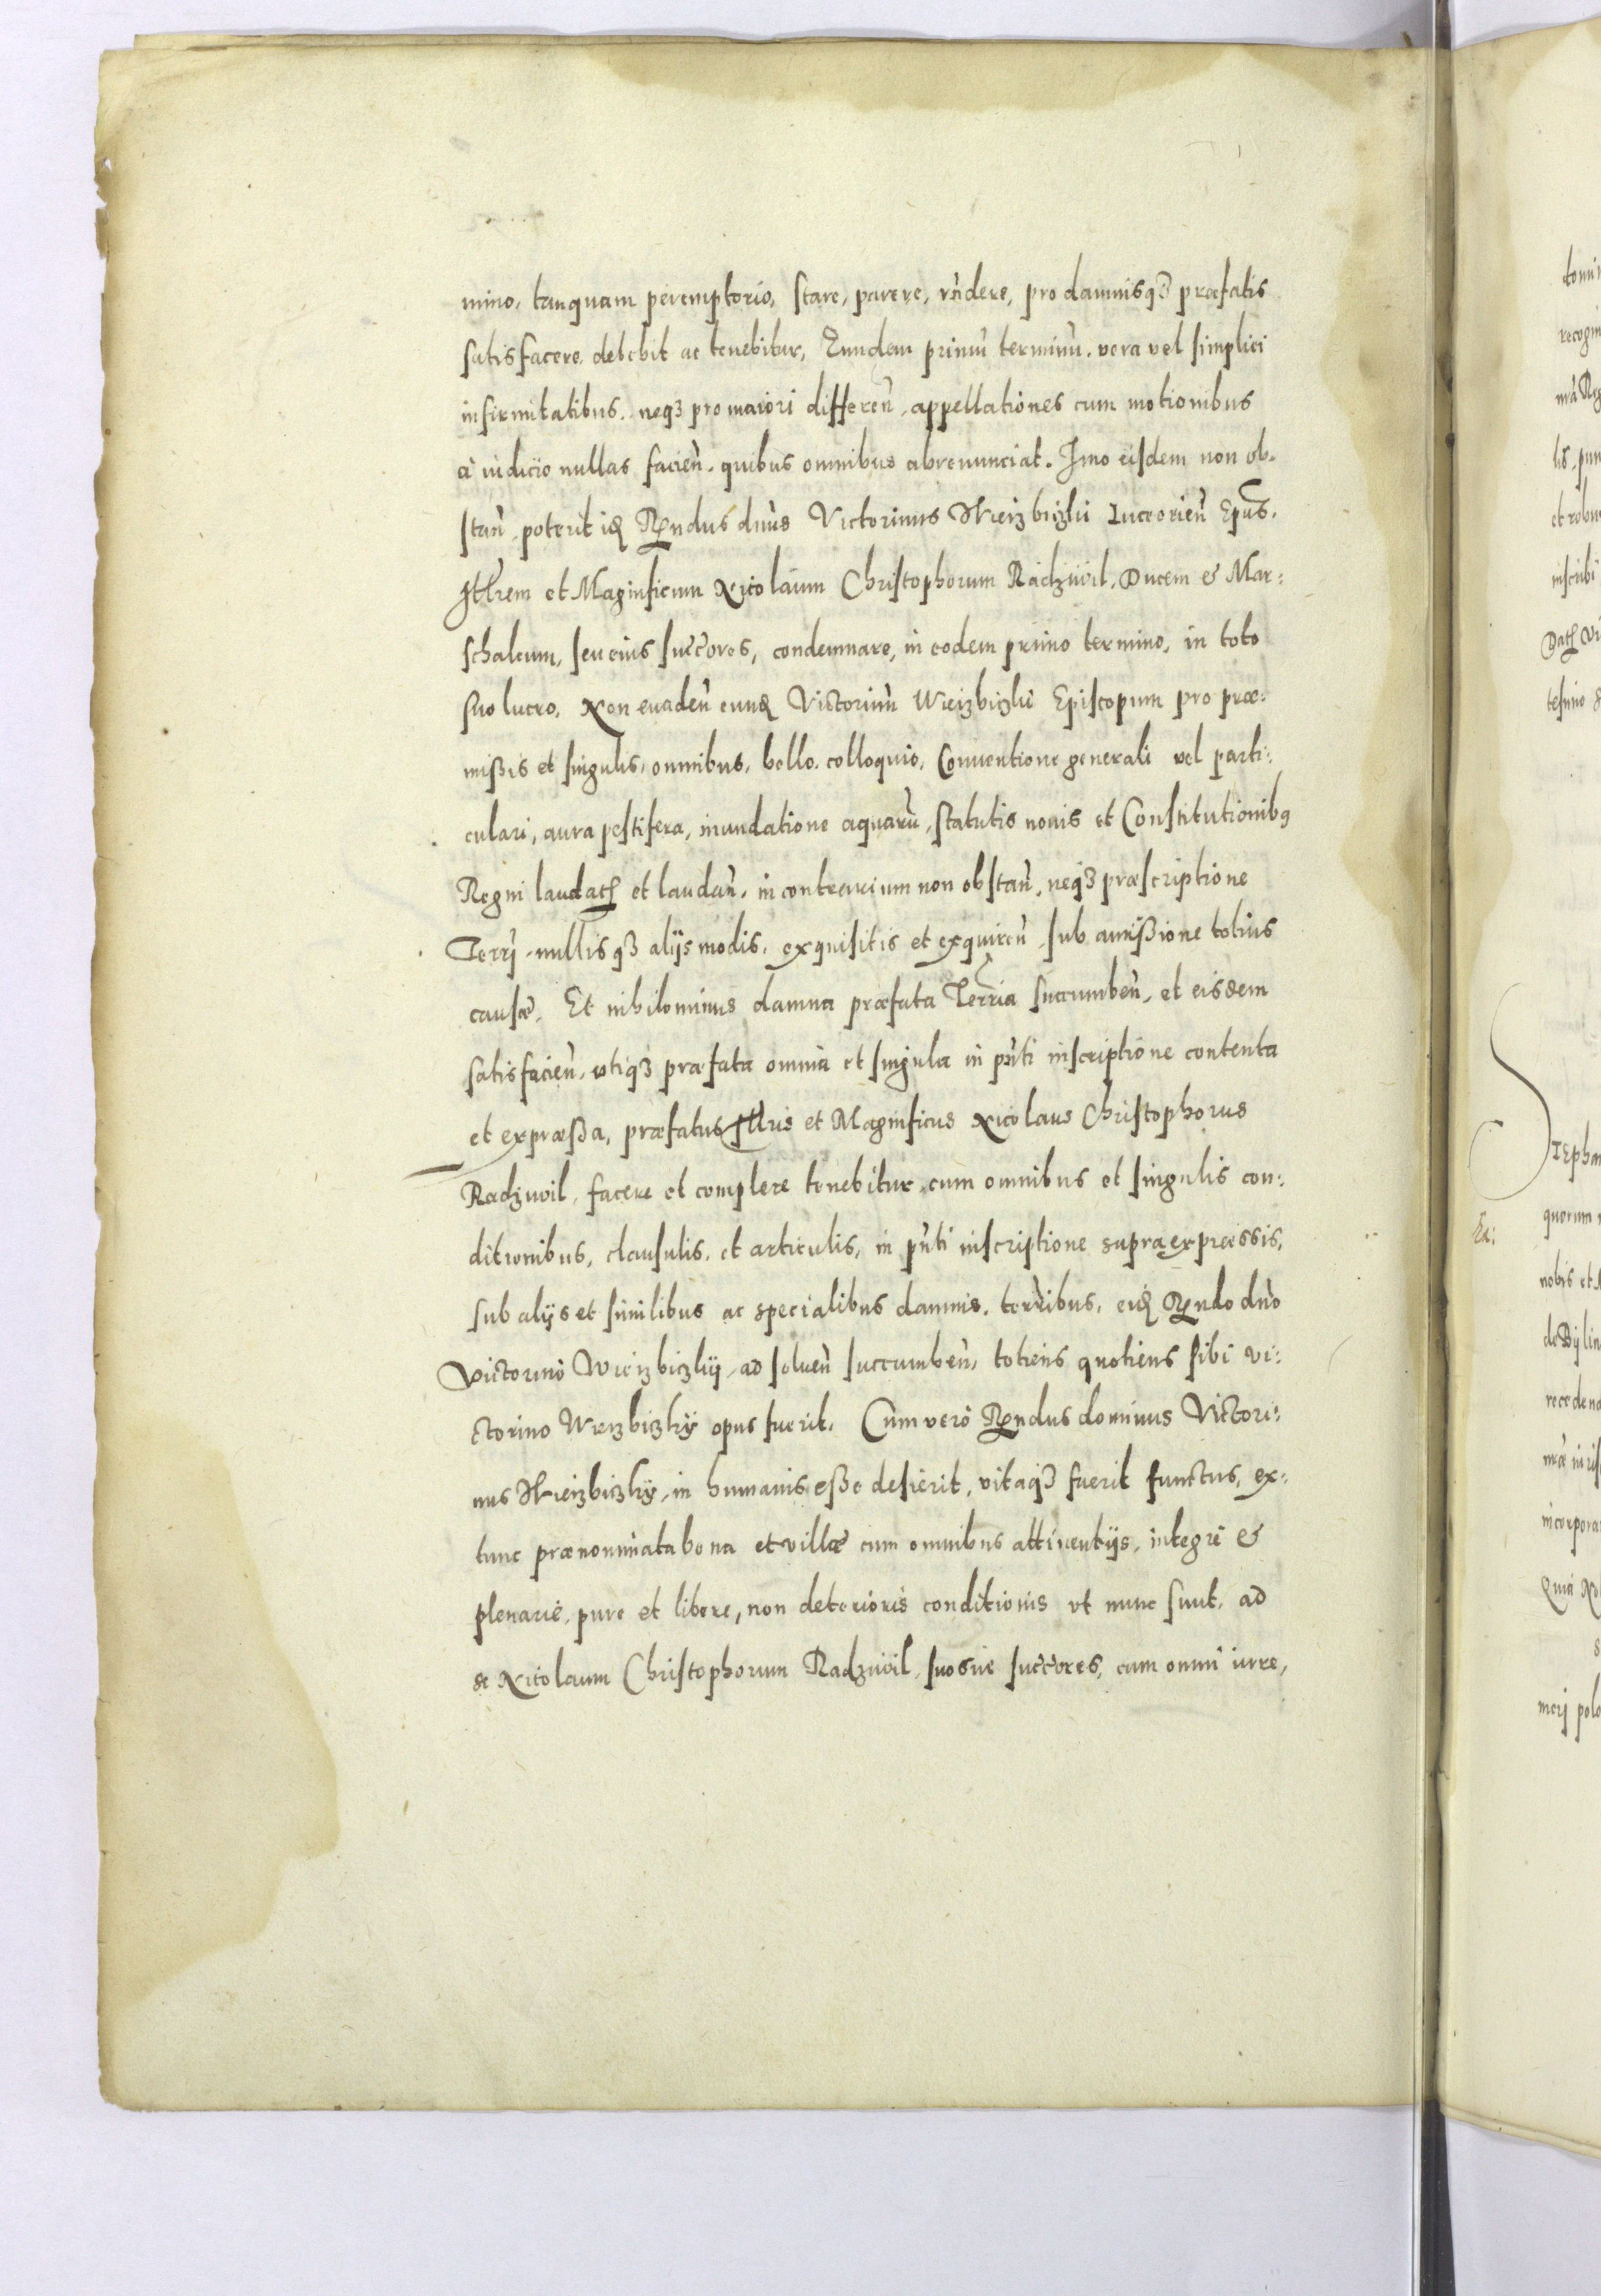 mino, tanquam peremptorio, stare, parere, rñdere, pro damnisqꝫ præfatis
satisfacere, debebit ac tenebitur, Eundem primũ terminũ, vera vel simplici
infirmitatibus, neqꝫ pro maiori differeñ, appellationes cum motionibus
à iudicio nullas facieñ, quibus omnibus abrenunciat. Imo eisdem non ob-
stañ, poterit idẽ Rẽndus dnũs Victorinus Wierzbiczkii Luceorieñ Epũs,
Illrem et Magnificum Nicolaum Christophorum Radziwil, Ducem & Mar:
schalcum, seu eius succ̃ores, condemnare, in eodem primo termino, in toto
suo lucro, Non euadeñ eundẽ Victorinũ Wierzbiczkii Episcopum pro præ:
mißis et singulis, omnibus, bello, colloquio, Conuentione generali vel parti:
culari, aura pestifera, inundatione aquarũ, statutis nouis et Constitutionibꝫ
Regni laudatꝭ et laudañ, in contrarium non obstañ, neqꝫ præscriptione
Terrj, nullisqꝫ alijs modis, exquisitis et exquireñ, sub amißione totius
causæ. Et nihilominus damna præfata Terr̃ia succumbeñ, et eisdem
satisfacieñ, vtiqꝫ præfata omnia et singula in pñti inscriptione contenta
et expræßa, præfatus Illris et Magnificus Nicolaus Christophorus
Radziwil, facere et complere tenebitur, cum omnibus et singulis con:
ditionibus, clausulis, et articulis, in pñti inscriptione supra expræssis,
sub alijs et similibus ac specialibus damnis, terr̃ibus, eidẽ Rẽndo dnõ
Victorino Wierzbiczkij, ad solueñ succumbeñ, totiens quotiens sibi Vi:
ctorino Wierzbiczkij opus fuerit. Cum verò Rẽndus dominus Victori:
nus Wierzbiczkij, in humanis eße desierit, vitaqꝫ fuerit functus, ex:
tunc prænominata bona et villæ cum omnibus attinentijs, integrè &
plenariè, pure et libere, non deterioris conditionis vt nunc sunt, ad
se Nicolaum Christophorum Radziwil, suosue succ̃ores, cum omni iure,